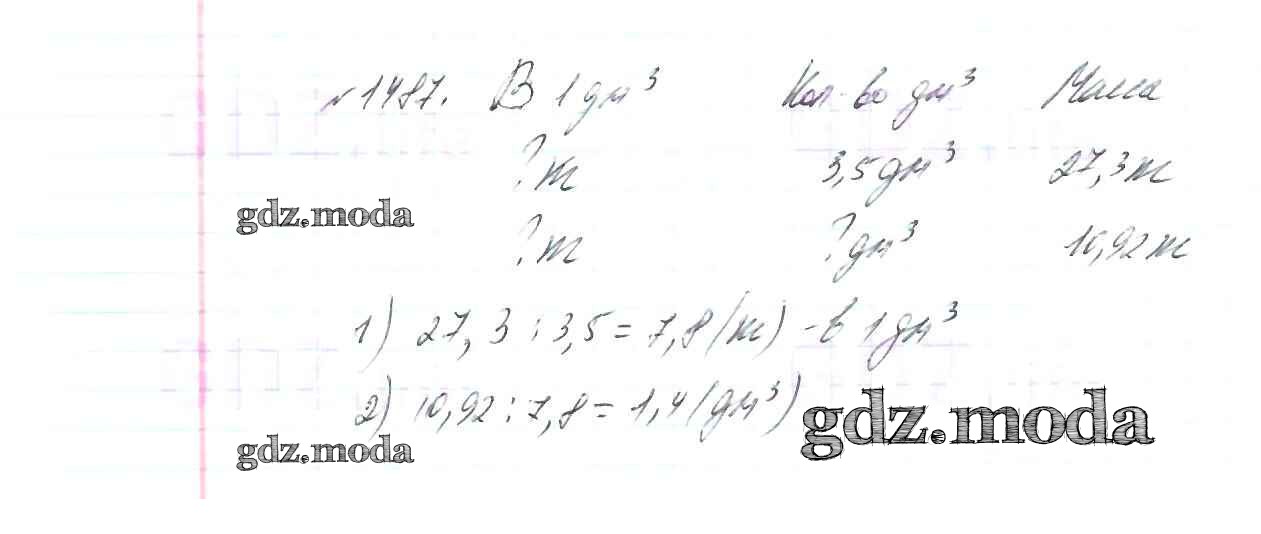 №1487. В 1 дм³ Кол-во дм³ Масса
? т 3,5 дм³ 27,3 т
gdz.moda
? т ? дм³ 10,92 т
1) 27,3 : 3,5 = 7,8 (т) - в 1 дм³
2) 10,92 : 7,8 = 1,4 (дм³)
gdz.moda
gdz.moda